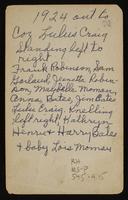 1924 out to
Coz Lulus Craig
Standing left to
right
Frank Robinson, Sam
Garland, Jeanette Robin-
son, Maybelle Moman,
Anna Bates, Jim Bates
Lulu Craig. Knelling
left right, Kathryn
Henri & Harry Bates
& baby Lois Moman
RH
MS-P
545:4.5